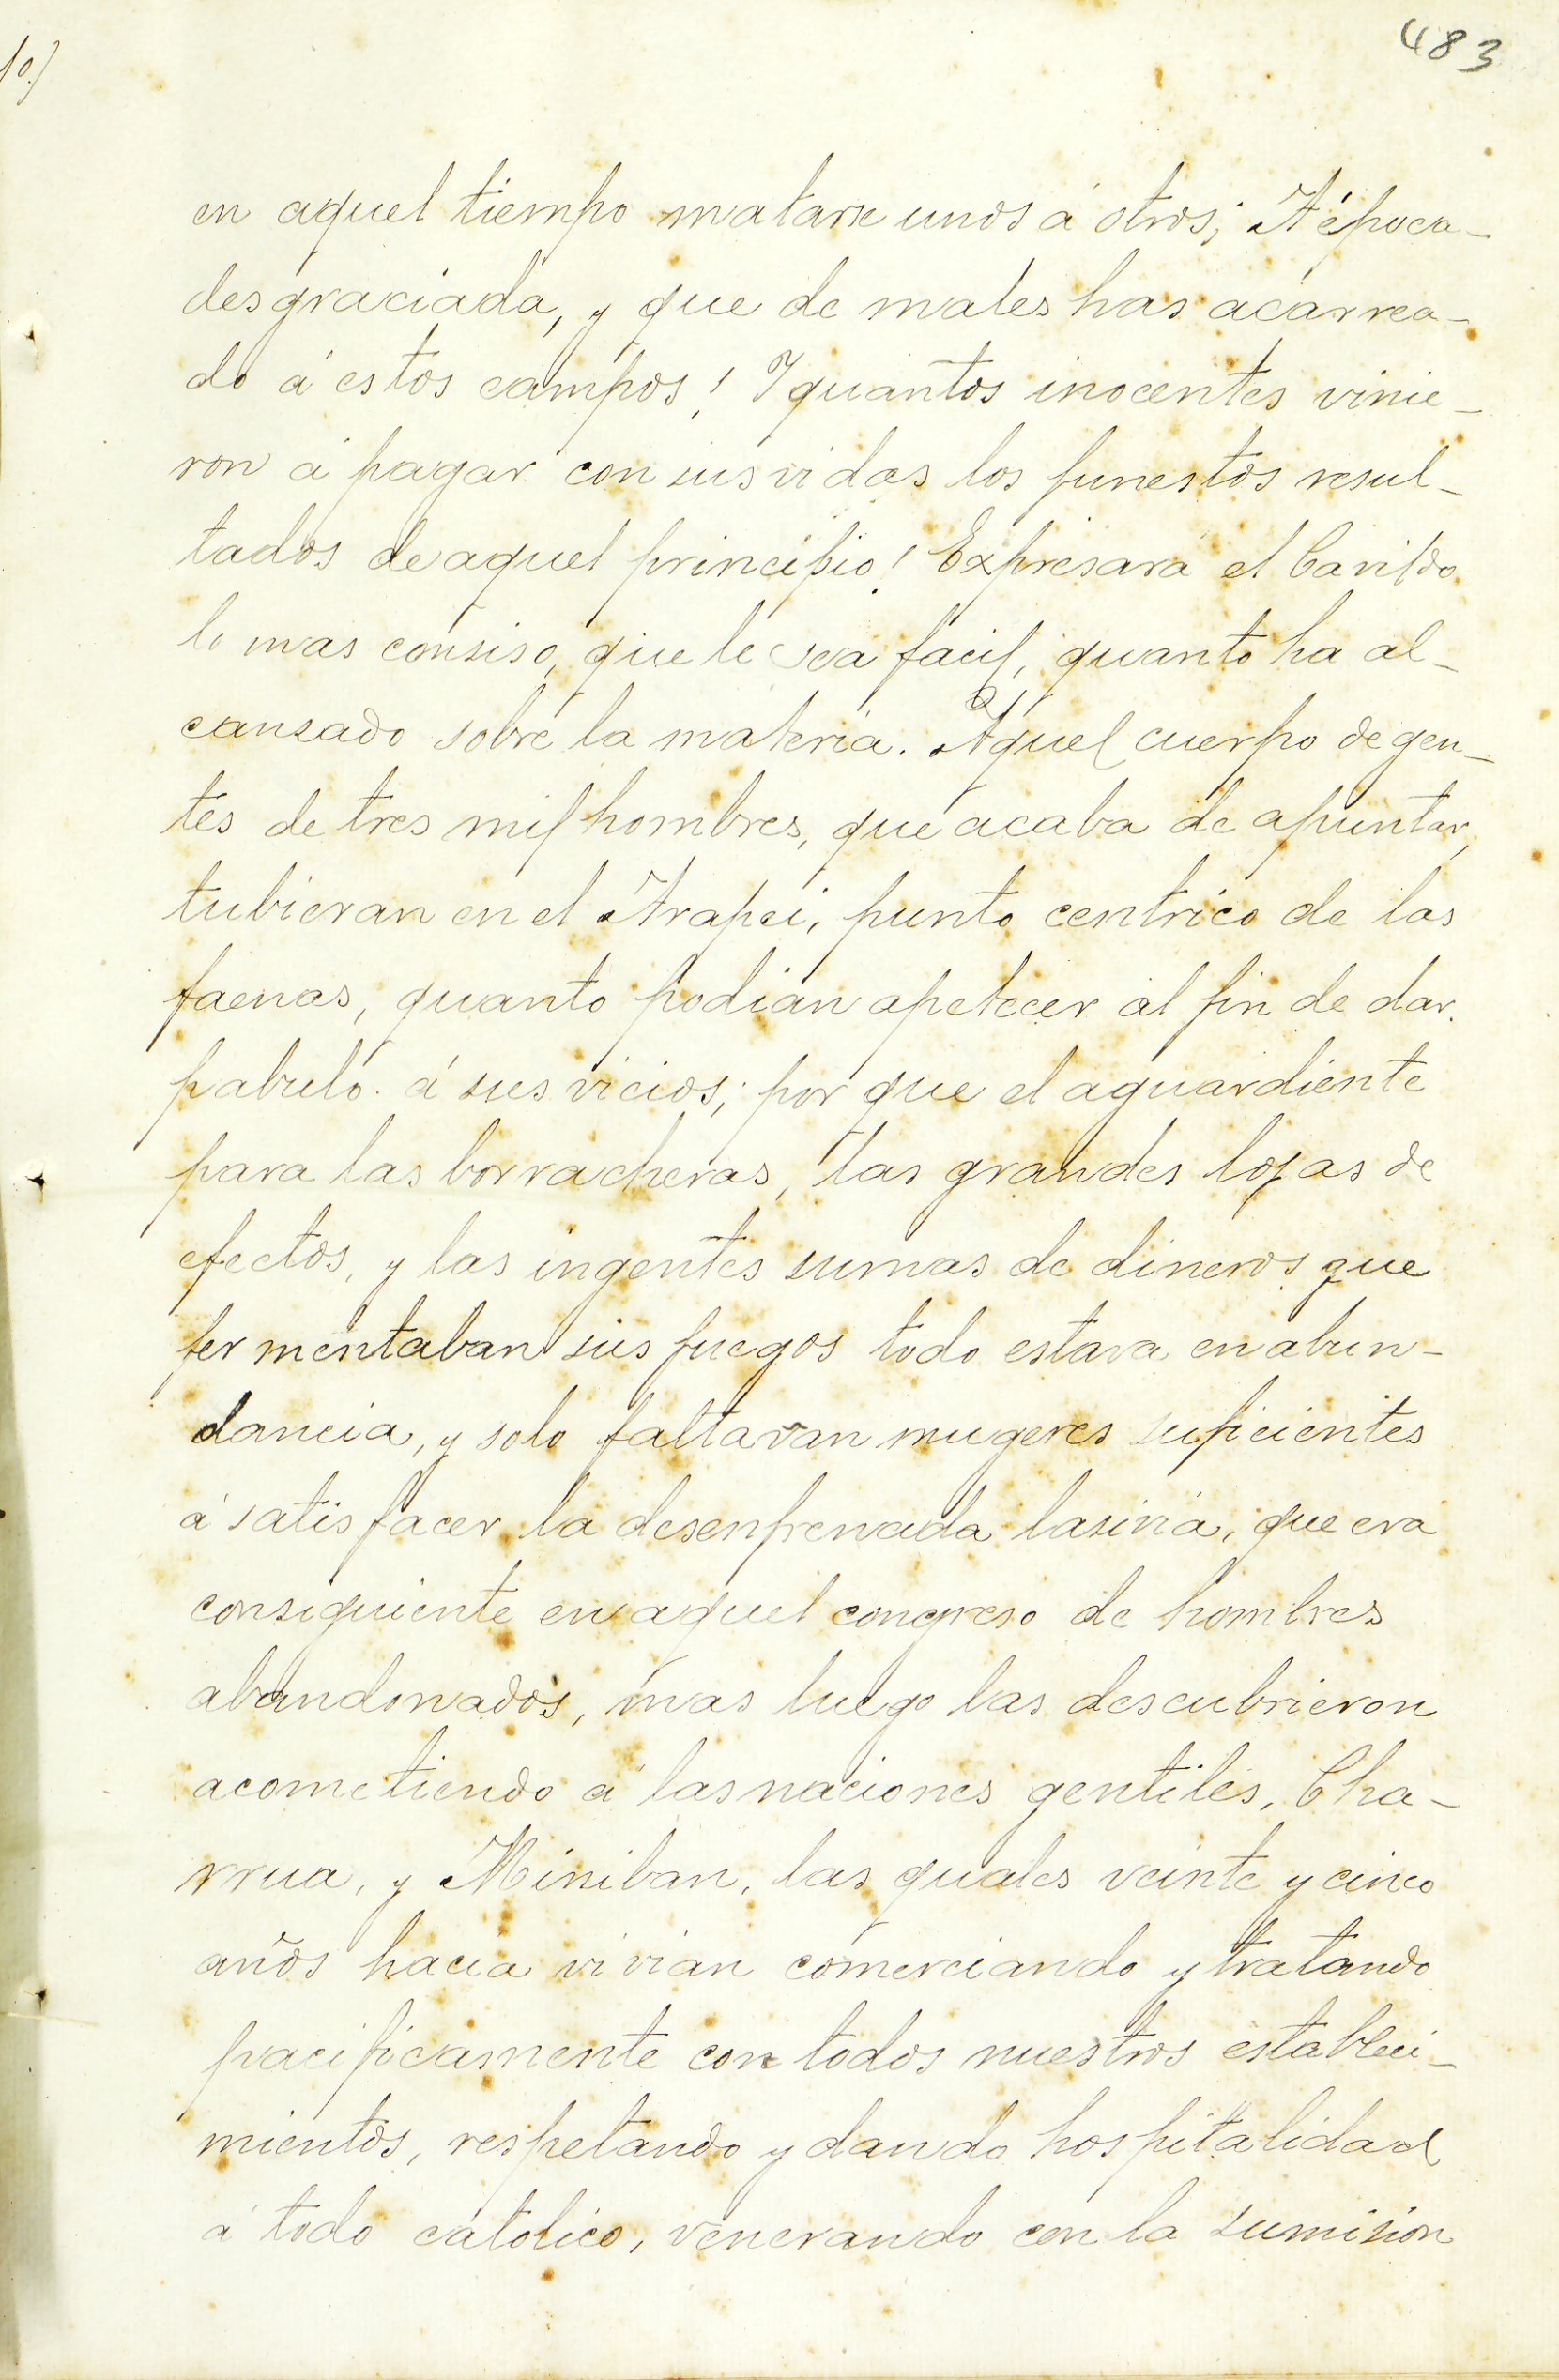 483
10.)
en aquel tiempo matarse unos á otros; A época-
desgraciada, y que de males has acarrea-
do á estos campos! Y quantos inocentes vinie-
ron á pagar con sus vidas los funestos resul-
tados de aquel principio! Expresará el Cavildo
lo mas consiso, que le sea facil, quanto ha al-
canzado sobre la materia. Aquel cuerpo de gen-
tes de tres mil hombres, que acaba de apuntar,
tubieran en el Arapei, punto centrico de las
faenas, quanto podian apetecer al fin de dar
pabulo á sus vicios; por que el aguardiente
para las borracheras, las grandes lojas de
efectos, y las ingentes sumas de dineros que
fermentaban sus fuegos todo estava en abun-
dancia, y solo faltavan mugeres suficientes
á satisfacer la desenfrenada lasivia, que era
consiguiente en aquel congreso de hombres
abandonados, mas luego las descubrieron
acometiendo á las naciones gentiles, Cha-
rrua, y Miniban, las quales veinte y cinco
años hacia vivian comerciando y tratando
pacificamente con todos nuestros estableci-
mientos, respetando y dando hospitalidad
á todo catolico, venerando con la sumision